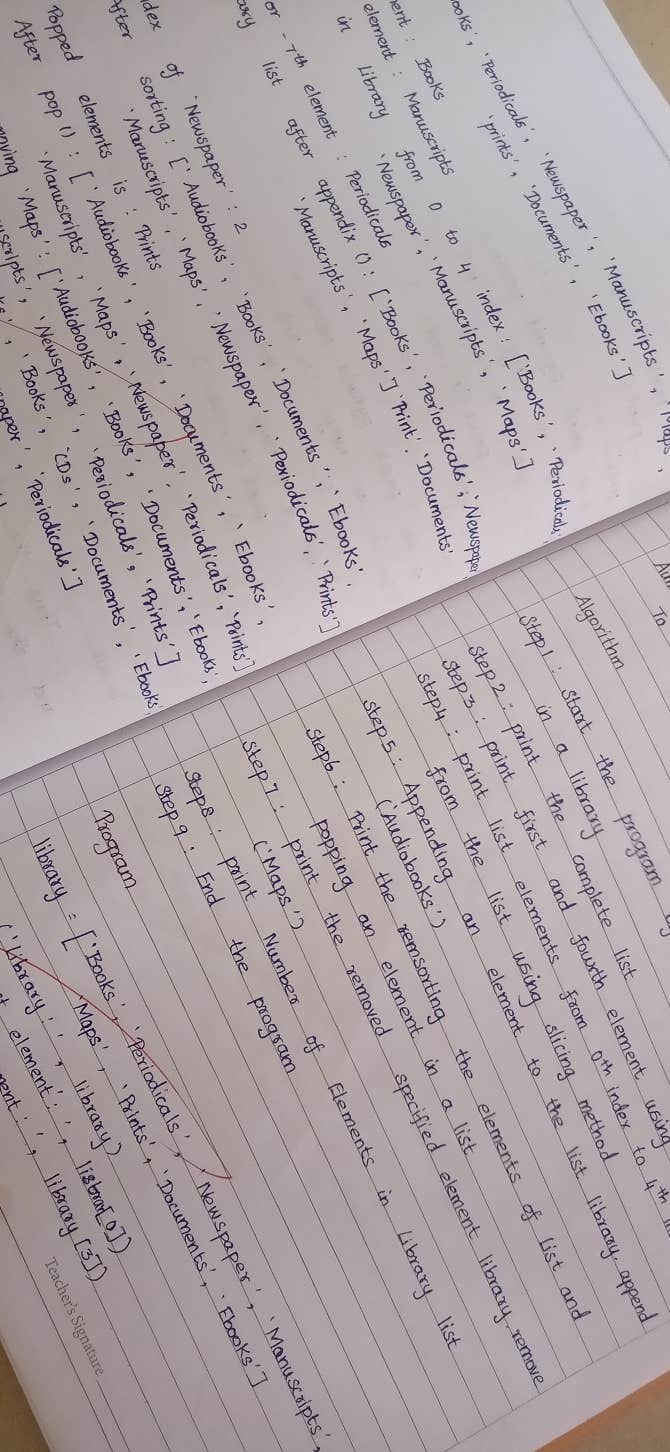 ooks', 'Periodicals', 'Newspaper', 'Manuscripts', 'Maps',
'prints', 'Documents', 'Ebooks']
ent : Books
element : Manuscripts
in Library from 0 to 4 index : ['Books', 'Periodicals'
'Newspaper', 'Manuscripts', 'Maps']
or -7th element : Periodicals
list after appendix () : ['Books', 'Periodicals', 'Newspaper
'Manuscripts', 'Maps'] 'Print', 'Documents'
ndex of 'Newspaper' : 2
After sorting : ['Audiobooks', 'Books', 'Documents', 'Ebooks',
'Manuscripts', 'Maps', 'Newspaper', 'Periodicals', 'Prints']
Popped elements is : Prints
After pop () : ['Audiobooks', 'Books', 'Documents', 'Ebooks',
'Manuscripts', 'Maps', 'Newspaper', 'Periodicals', 'Prints']
moving 'Maps' : ['Audiobooks', 'Books', 'Documents', 'Ebooks',
uscripts', 'Newspaper', 'Periodicals', 'Prints']
'Books', 'CDs', 'Documents', 'Ebooks'
spaper', 'Periodicals']
To
Algorithm
Step1 : Start the program
Step2 : print the complete list
in a library
Step3 : print first and fourth element using
Step4 : print list elements from 0th index to 4th
from the list using slicing method
Step5 : Appending an element to the list library. append
('Audiobooks')
Step6 : Print the remsorting the elements of list and
popping an element in a list
Step7 : print the removed specified element library. remove
('Maps')
Step8 : print Number of Elements in Library list
Step9 : End the program
Program
library = ['Books', 'Periodicals', 'Newspaper', 'Manuscripts',
'Maps', 'Prints', 'Documents', 'Ebooks']
('Library:', library)
element:', libran[0])
ment:', library[3])
Teacher's Signature